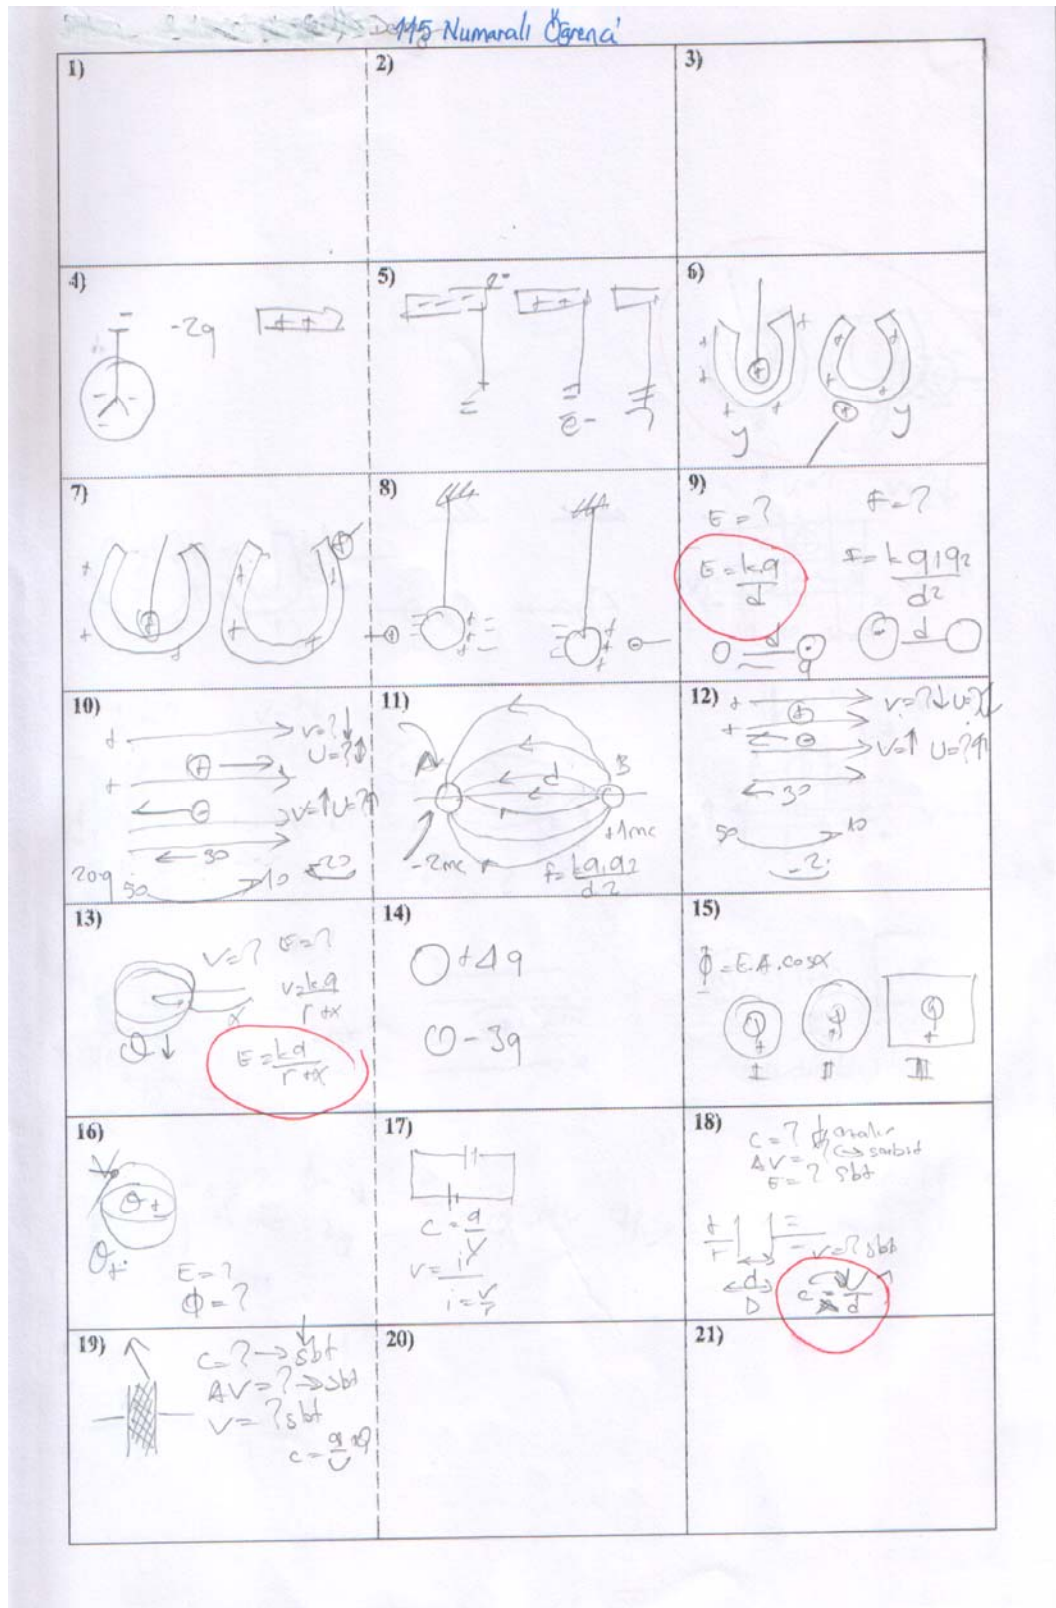 115 Numaralı Öğrenci
1)
2)
3)
4)
-2q
+ +
5)
e-
- - -
+ +
e-
6)
+
y
y
7)
8)
9)
E = ?
F = ?
E = kq/d
F = kq1q2/d2
d
q
d
10)
V=?↓
U=?↓
V=↑ U=?↑
30
20q
50
10
20
11)
A
B
d
-2mc
+1mc
f = kq1q2/d2
12)
V=?↓ U=?↓
V=↑ U=?↑
30
50
10
-2
13)
V=?
E=?
V=kq/r+x
x
E=kq/r+x
14)
+4q
-3q
15)
ϕ=E.A.cosα
I
II
III
16)
E=?
ϕ=?
17)
c=q/V
V=i
i=V/r
18)
C=? ↓ azalır
ΔV=? → sabit
E=? sbt
V=? sbt
d
D
19)
C=? → sbt
ΔV=? → sbt
V=? sbt
20)
21)